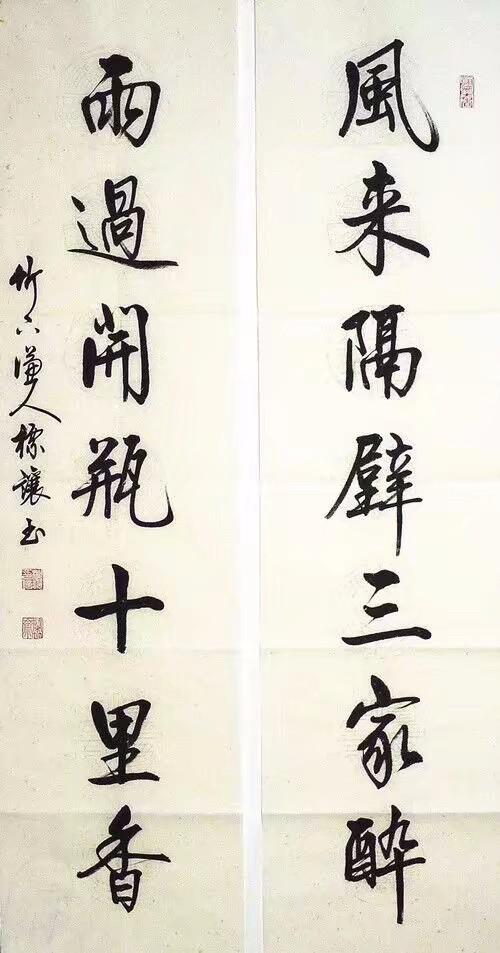 風来隔壁三家醉
雨過開瓶十里香
竹下謙人標讓書